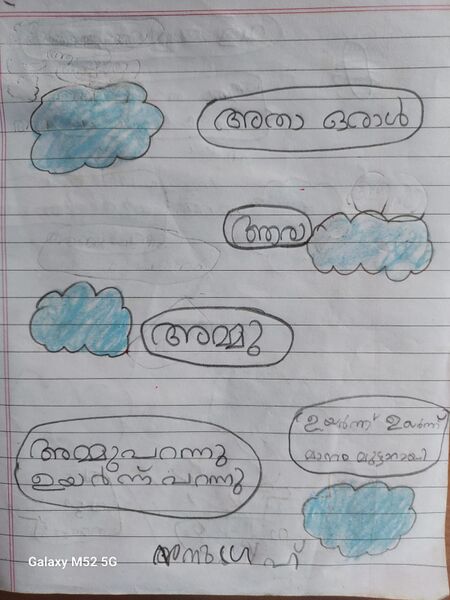 അതാ ഒരാൾ
ആരാ
അമ്മു
ഉയർന്ന് ഉയർന്ന്
മാനം മുട്ടാനായി
അമ്മു പറന്നു
ഉയർന്ന് പറന്നു
Galaxy M52 5G